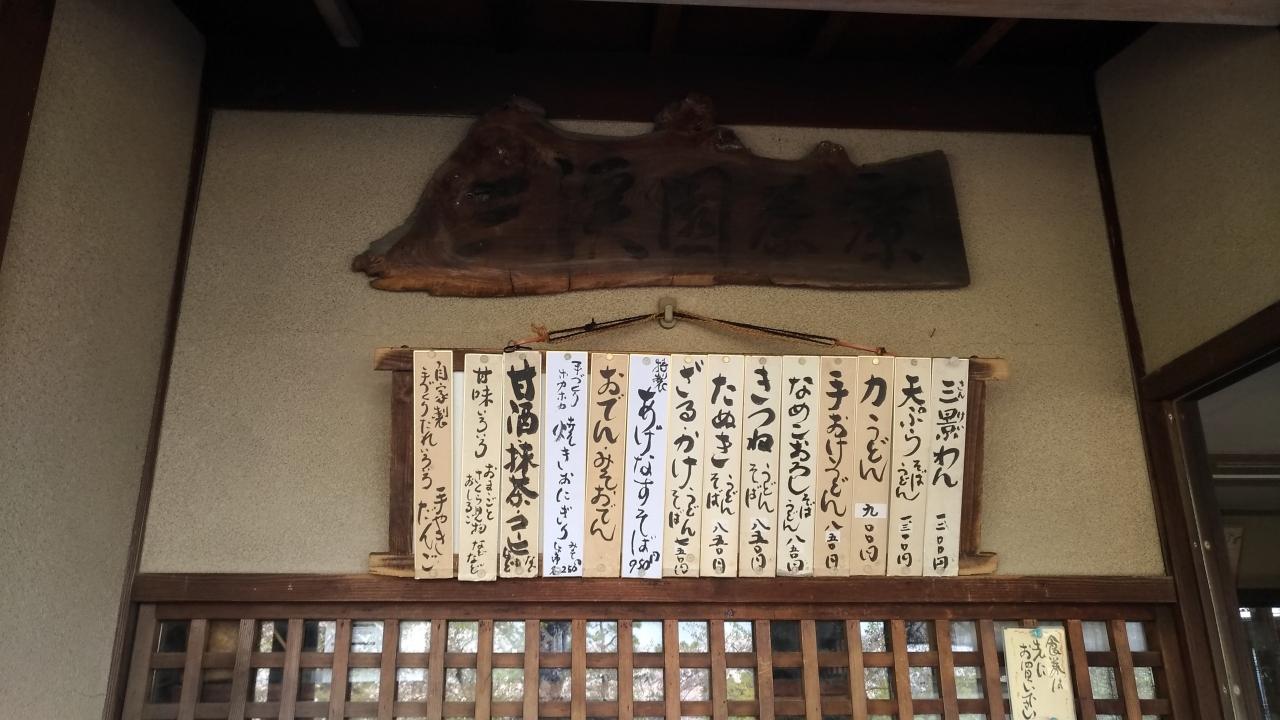 三溪園茶寮
三景わん 一三〇〇円
さんけい
天ぷら そば うどん 一三〇〇円
力うどん 九〇〇円
手おけうどん 八五〇円
なめこおろし そば うどん 八五〇円
きつね うどん そば 八五〇円
たぬき うどん そば 八五〇円
ざる・かけ うどん そば 七五〇円
特製 あげなすそば 950円
おでん・みそおでん
手づくり ホカホカ 焼きおにぎり
甘酒・抹茶・コーヒー
甘味いろいろ など
自家製 手づくりだれいろいろ 手やきだんご
食券は
先に
お買い